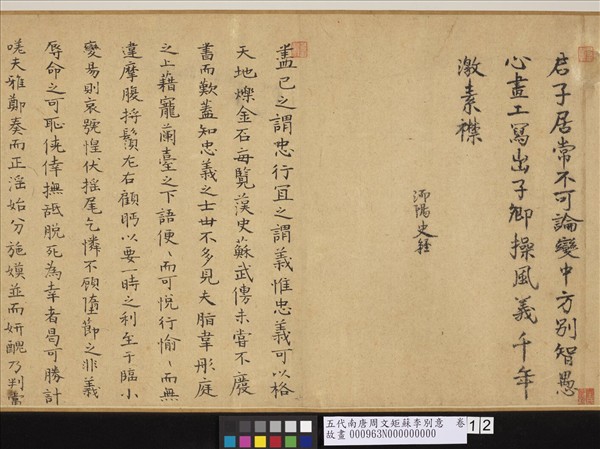 君子居常不可論變中方別智愚
心畫工寫出子卿操風義千年
激素襟
沔陽史經
盡己之謂忠行宜之謂義惟忠義可以格
天地爍金石每覽漢史蘇武傳未嘗不廢
書而歎蓋知忠義之士世不多見夫脂韋彤庭
之上藉寵蘭臺之下語便〻而可悅行愉〻而無
違摩腹捋鬚左右顧眄以要一時之利至于臨小
變易則哀號惶伏搖尾乞憐不顧墮節之非義
辱命之可恥僥倖撫詆脫死為幸者曷可勝計
嗟夫雅鄭奏而正淫始分施嫫並而妍醜乃判當
五代南唐周文矩蘇李別意 卷
故畫 000963N000000000
12